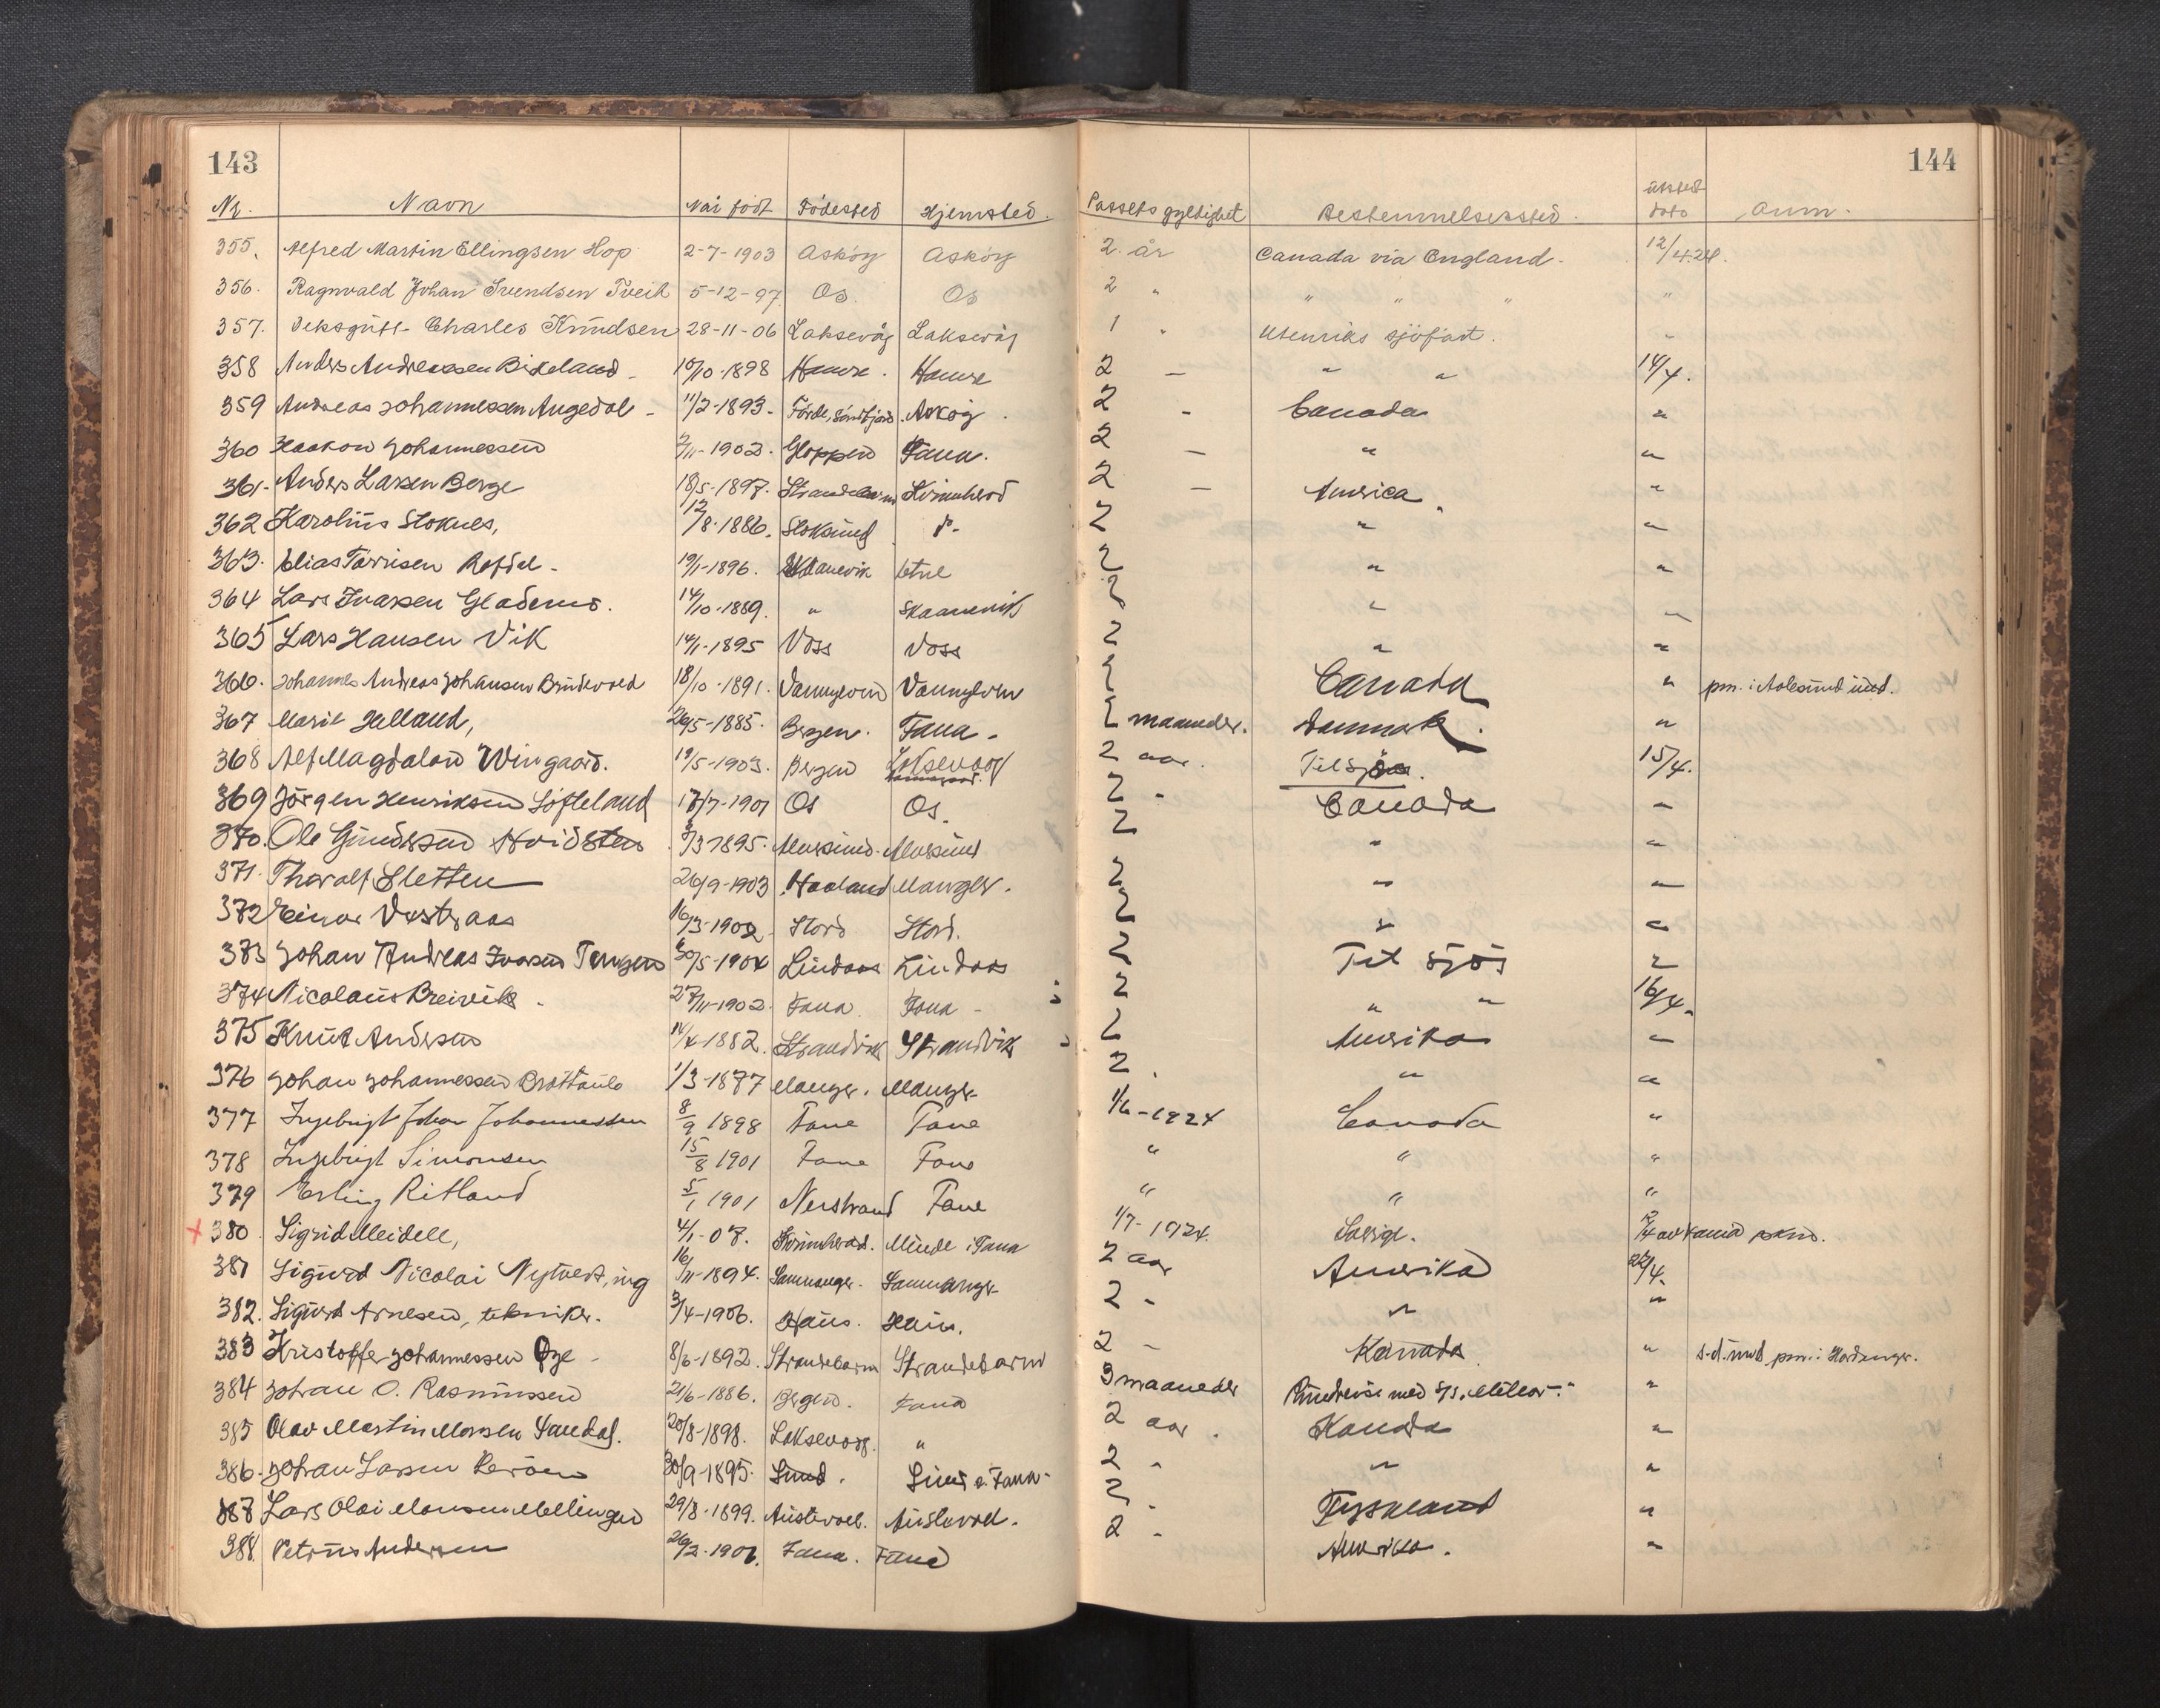 143 144
Nr. Navn Når født Fødested Hjemsted. Passets gyldighet Bestemmelsessted. utsted dato Anm.
355. Alfred Martin Ellingsen Hop 2-7-1903 Askøy Askøy 2 år Canada via England. 12/4.24.
356. Ragnvald Johan Svendsen Tveit 5-12-97 Os Os 2 " " " " "
357. Charles Knudsen 28-11-06 Laksevåg Laksevåg 1 " Utenriks sjøfart. "
358 Anders Andreassen Birkeland 10/10-1898 Hamre. Hamre 2 — " " 14/4.
359 Andreas Johannessen Angedal 11/2-1893 Førde, Søndfjord. Askøy 2 - Canada "
360 Haakon Johannessen /11-1902. Gloppen Fana. 2 — " "
361. Anders Larsen Berge 18/5-1897. Strandebarm Kvinnherad 2 — America "
362 Karolius Stoknes, 12/8-1886. Stoksund do- 2 " "
363. Elias Tørrisen 19/1-1896. Skaanevik Etne 2 " "
364 Lars Ivarsen 14/10-1889. " Skaanevik 2 " "
365 Lars Hansen Vik 14/1-1895 Voss Voss 2 " "
366. Johannes Andreas Johansen Brudevold 18/10-1891. Vannylven Vannylven 2 Canada " pm. i Aalesund und.
367 Marie Helland, 26/5-1885. Bergen. Fana. 2 maaneder. Danmark. "
368 Alf Magdalon Wingaard. 19/5-1903. Bergen Laksevaag 2 aar. Til sjøs. 15/4.
369 Jørgen Henriksen Løfteland 17/7-1901 Os Os. 2 - Canada "
370. Ole Gundersen Hvidsten /3 1895. Alversund. Alversund 2 " "
371. Thoralf Sletten 26/9-1903 Haaland Manger. 2 " "
372 Einar Vestraas 16/3-1902 Stord Stord. 2 " "
373 Johan Andreas Ivarsen Tangen 30/5-1904 Lindaas Lindaas 2 Til sjøs "
374 Nicolaus Breivik. 27/11-1902. Fana. Fana 2 " " 16/4.
375 Knut Andersen 14/4-1882. Strandvik Strandvik 2 Amerika "
376 Johan Johannessen 1/3-1877 Manger. Manger 2. " "
377 Ingebrigt Johan Johannessen 8/9 1898 Fane Fane 1/6-1924 Canada "
378 Ingebrigt Simonsen 15/8 1901 Fane Fane " " "
379 Erling Ritland 5/1 1901 Nerstrand Fane " " "
x 380. Sigrid Meidell, 4/1-07. Kvinnherad. Minde i Fana 1/7-1924. Sverige. /4 av Fana
381 Sigurd Nicolai Nytvedt, ing 16/11-1894. Samnanger. Samnanger 2 aar Amerika 22/4.
382. Sigurd Arnesen, tekniker. 3/4-1906. Haus. Haus. 2 - " "
383 Kristoffer Johannessen Øye 8/6-1892. Strandebarm Strandebarm 2 — Kanada " s.d. und pm. i Hardanger.
384 Johan O. Rasmussen 21/6-1886. Bergen. Fana 3 maaneder Rundreise med S/S. "Meteor". "
385 Olav Martin Monsen Sandal. 20/8-1898. Laksevaag. " 2 aar. Kanada "
386. Johan Larsen 30/9-1895. Sund. Sund e. Fana 2 " " "
387 Lars Olai Monsen Mellingen 29/8-1899. Austevoll. Austevoll. 2 - Tyskland "
388 Petrus Andersen 26/2-1901. Fana. Fana 2 - Amerika. "